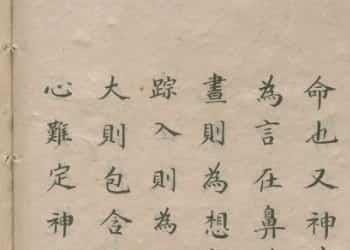 命也又神
為言在鼻
晝則為想
踪入則為
大則包含
心難定神